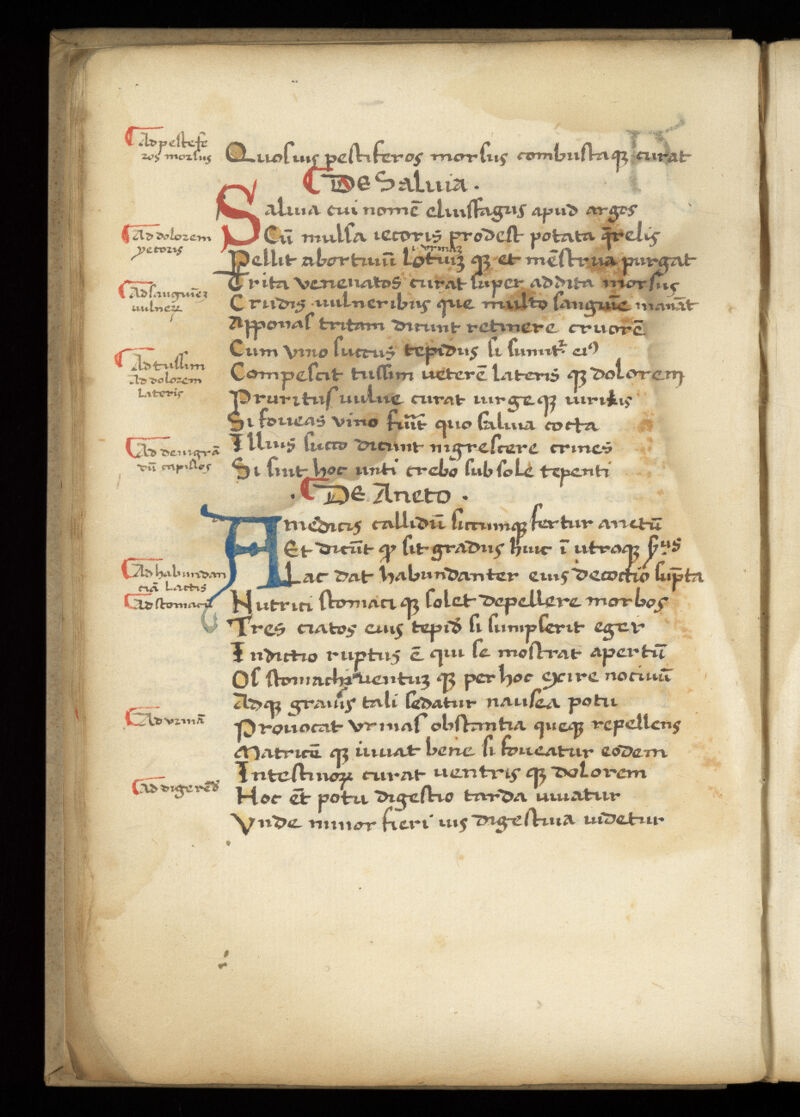 Ad pestife
ros morsus
Quosuis pestiferos morsus combustaqꝫ curat
De Saluia .
Saluia cui nomē eluisfagus apud argos
Ad dolorem
pectoris
Cū mulsa iecoris prodest potata q̄relis
Pellit abortiuū qꝫ et mēstrua purgat
Trita venenatos curat super addita morsus
Ad sanguinē
uulneꝝ
Crudis uulneribus que multo sanguīe manāt
Apponas tritam dicunt retinere cruorē
Ad tussim
Ad dolorem
Lateris
Cum vino succus tepidus si sumit᷑ ei⁹
Compescit tussim ueterē lateris qꝫ dolorem
Pruritus uulue curat uirgeqꝫ uirilis
Si foueas vino fuūt quo saluia cocta
Ad denigrā
dū capillos
Illius succo dicunt nigrescere crines
Si sint hoc uncti crebo sub sole tepenti
. De Aneto .
Amedicis callidū siccumqꝫ fertur anetū
Et dicūt sit gradus huic ī utroqꝫ
Ad habundan
ciā Lactis
Lac dat habundanter eius decoctio sūpta
Ad stomacū
Nutrici stomaci qꝫ solet depellere morbos
Tres ciatos eius tepid si sumpserit eger
Indictio ruptus ē qui se mostrat apertū
Os stomachi uentuꝫ qꝫ per hoc exire nociuū
Adqꝫ grauis tali sedatur nausea potu
Ad vrinā
Prouocat vrinas obstantia queqꝫ repellens
Matricē qꝫ iuuat bene si foueatur eodem
Intestinoꝝ curat uentris qꝫ dolorem
Ad digerēd
Hoc ēt potu digestio tarda iuuatur
Vnde minor fieri uis digestiua uidetur